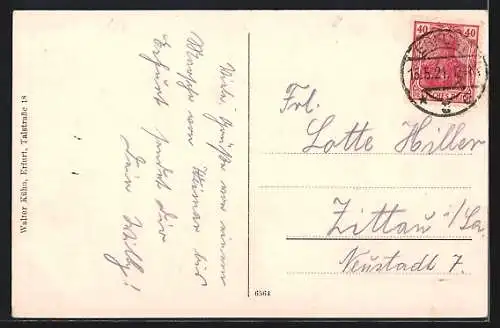 Walter Kühn, Erfurt, Talstraße 18
Viele Grüße von einem
Marsche von Weimar bis
Erfurt sendet Dir
Dein Willy!
6564
40 40
ERFURT
18.5.21.
Frl.
Lotte Hiller
Zittau i/Sa.
Neustadt 7.